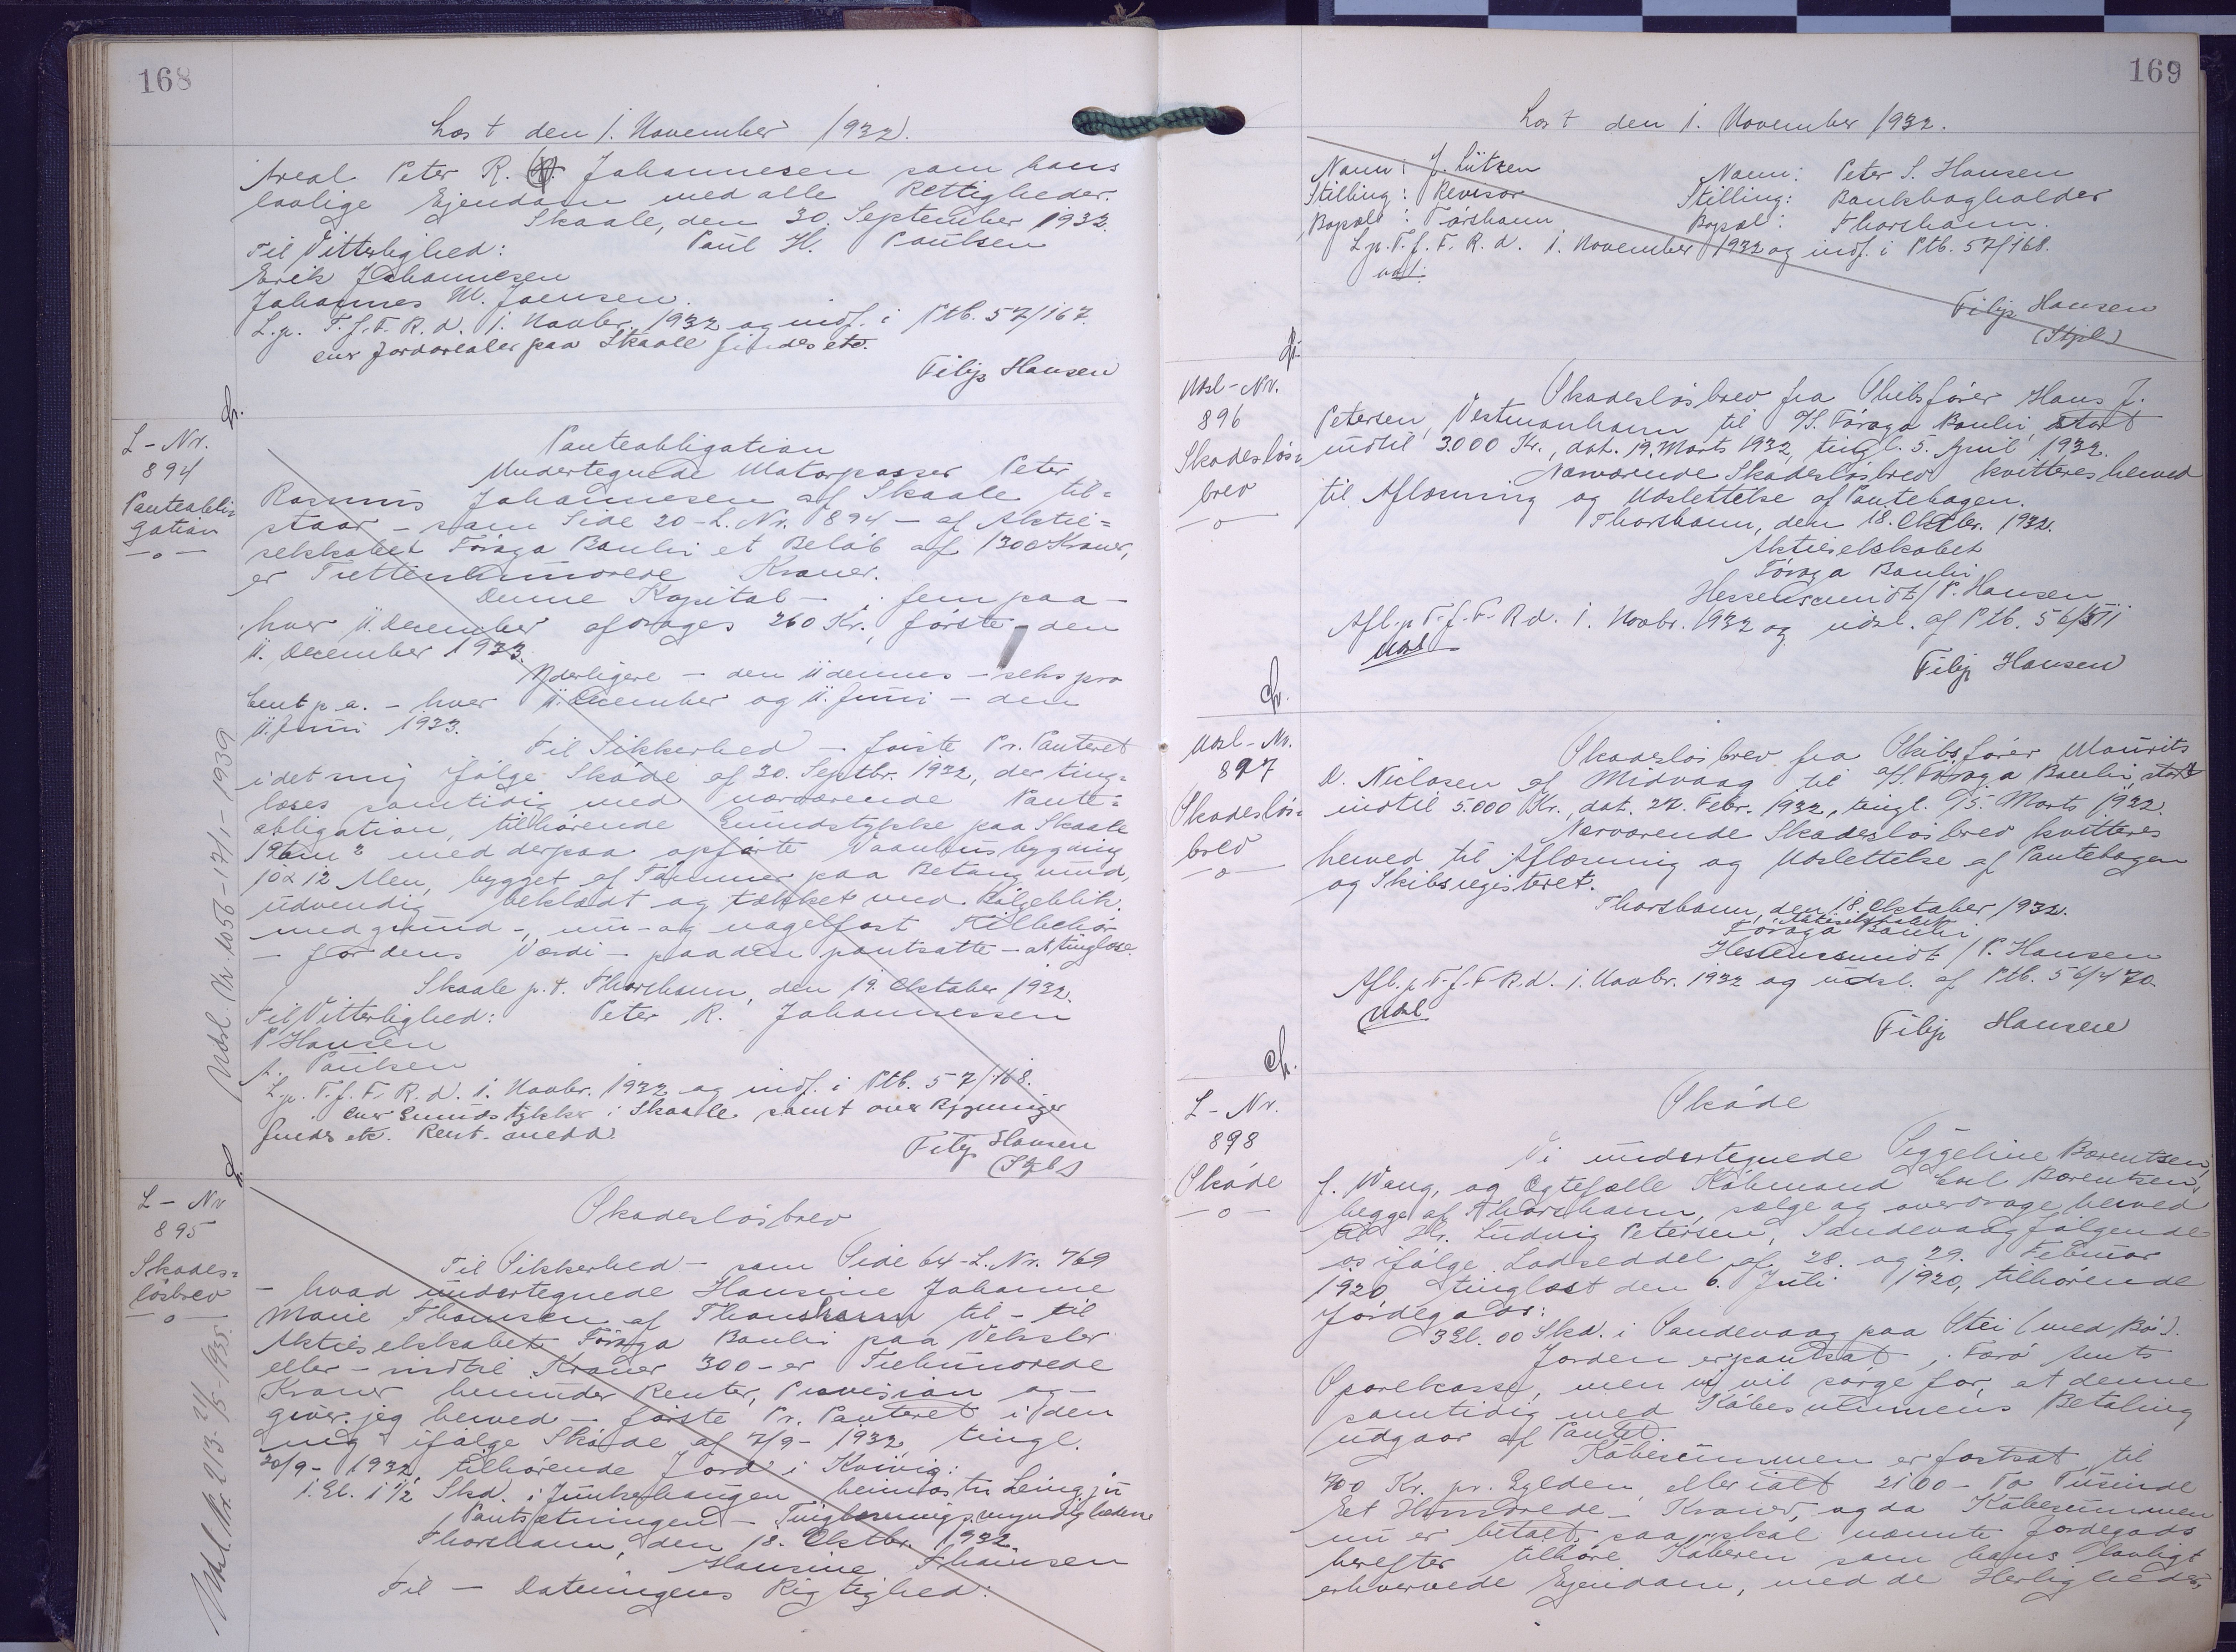 168
Læst den 1. November 1932.
Areal Peter R. Johannesen som hans
lovlige Ejendom med alle Rettigheder.
Skaale, den 30. September 1932.
Til Vitterlighed: Poul H. Poulsen
Erik Johannesen
Johannes M. Joensen.
L. p. T. f. F. R. d. 1. Novbr. 1932 og indf. i Ptb. 57/167.
over Jordarealer paa Skaale findes etc.
Filip Hansen
L - Nr.
894
Panteobli-
gation
Panteobligation
Undertegnede Motorpasser Peter
Rasmus Johannesen af Skaale til=
staar - som Side 20 - L. Nr. 894 - af Aktie=
selskabet Föroya Banki et Beløb af 1300 Kroner,
er Trettenhundrede Kroner.
Denne Kapital - : fem paa -
hver 11. December afdrages 260 Kr., første - den
11. December 1933.
Yderligere - den 11 dennes - seks pro
cent p. a. - hver 11. December og 11. Juni - den
11. Juni 1933.
Til Sikkerhed - første Pr. Panteret
i det mig ifølge Skøde af 30. Septbr. 1932, der ting=
læses samtidig med nærværende Pante=
obligation, tilhørende Grundstykke paa Skaale
med derpaa opførte Vaaningsbygning
10 x 12 Alen, bygget af Tømmer paa Betongrund,
udvendig beklædt og tækket med Bølgeblik.
med grund -, mur- og nagelfast Tilbehør
- for dens Værdi - paa den pantsatte - at tinglæse.
Skaale p. t. Thorshavn, den 19. Oktober 1932.
Til Vitterlighed: Peter R. Johannessen
P. Hansen
J. Poulsen
L. p. T. f. F. R. d. 1. Novbr. 1932 og indf. i Ptb. 57/168.
over Grundstykker i Skaale samt over Bygninger
findes etc.
Filip Hansen
Udsl. Nr. 1056 - 17/1 - 1939
L - Nr
895
Skades=
løsbrev
Skadesløsbrev
Til Sikkerhed - som Side 64 - L. Nr. 769
- hvad undertegnede Hansine Johanne
Marie Thomsen af Thorshavn til - til
Aktieselskabet Föroya Banki paa Veksler
eller - indtil Kroner 300 - er Trehundrede
Kroner herunder Renter, Provision og -
giver jeg herved - første Pr. Panteret i den
mig ifølge Skøde af 7/9 - 1932 tingl.
20/9 - 1932 tilhørende Jord i Kvivig:
1 Gl. 1 1/2 Skd. i
Pantsætningen - Tinglysningsmyndighederne
Thorshavn, den 18. Oktbr. 1932.
Hansine Thomsen
Til - Dateringens Rigtighed:
Udsl. Nr. 213 - 21/5 - 1935
169
Læst den 1. November 1932.
Navn: J. Lützen Navn: Peter S. Hansen
Stilling: Revisor Stilling: Bankbogholder
Bopæl: Tórshavn Bopæl: Thorshavn.
L. p. T. f. F. R. d. 1. November 1932 og indf. i Ptb. 57/168.
Filip Hansen
Udsl - Nr.
896
Skadesløs=
brev
Skadesløsbrev fra Skibsfører Hans J.
Petersen, Vestmanhavn til A/S. Föroya Banki, stort
indtil 3000 Kr., dat. 19. Marts 1932, tingl. 5. April 1932.
Nærværende Skadesløsbrev kvitteres herved
til Aflæsning og Udslettelse af Pantebogen.
Thorshavn, den 18. Oktbr. 1932.
Aktieselskabet
Föroya Banki
P. Hansen
Afl. p. T. f. F. R. d. 1. Novbr. 1932 og udsl. af Ptb. 56/511
Udsl
Filip Hansen
Udsl - Nr.
897
Skadesløs=
brev
Skadesløsbrev fra Skibsfører Mourits
D. Niclasen af Midvaag til A/S. Föroya Banki, stort
indtil 5.000 Kr., dat. 27. Febr. 1932, tingl. 15. Marts 1932.
Nærværende Skadesløsbrev kvitteres
herved til Aflæsning og Udslettelse af Pantebogen
og Skibsregisteret.
Thorshavn, den 18. Oktober 1932.
Aktieselskabet
Föroya Banki
P. Hansen
Afl. p. T. f. F. R. d. 1. Novbr. 1932 og udsl. af Ptb. 56/470.
Udsl
Filip Hansen
L - Nr.
898
Skøde
Skøde
Vi undertegnede Siggeline Bærentsen,
f. Wang, og Ægtefælle Købmand Emil Bærentsen,
begge af Thorshavn, sælge og overdrage herved
til Hr. Ludvig Petersen, Sandevaag følgende
os ifølge Lodseddel af 28. og 29. Februar
1920 tinglæst den 6. Juli 1920, tilhørende
Jordegods:
3 Gl. 00 Skd. i Sandevaag paa Stei (med Bø).
Jorden er pantsat i Færø Amts
Sparekasse, men vi vil sørge for, at denne
samtidig med Købesummens Betaling
udgaar af Pantet.
Købesummen er fastsat til
700 Kr. pr. Gylden eller ialt 2100 - To Tusinde
Et Hundrede - Kroner, og da Købesummen
nu er betalt, saa skal nævnte Jordegods
herefter tilhøre Køberen som hans lovligt
erhvervede Ejendom, med de Herligheder,